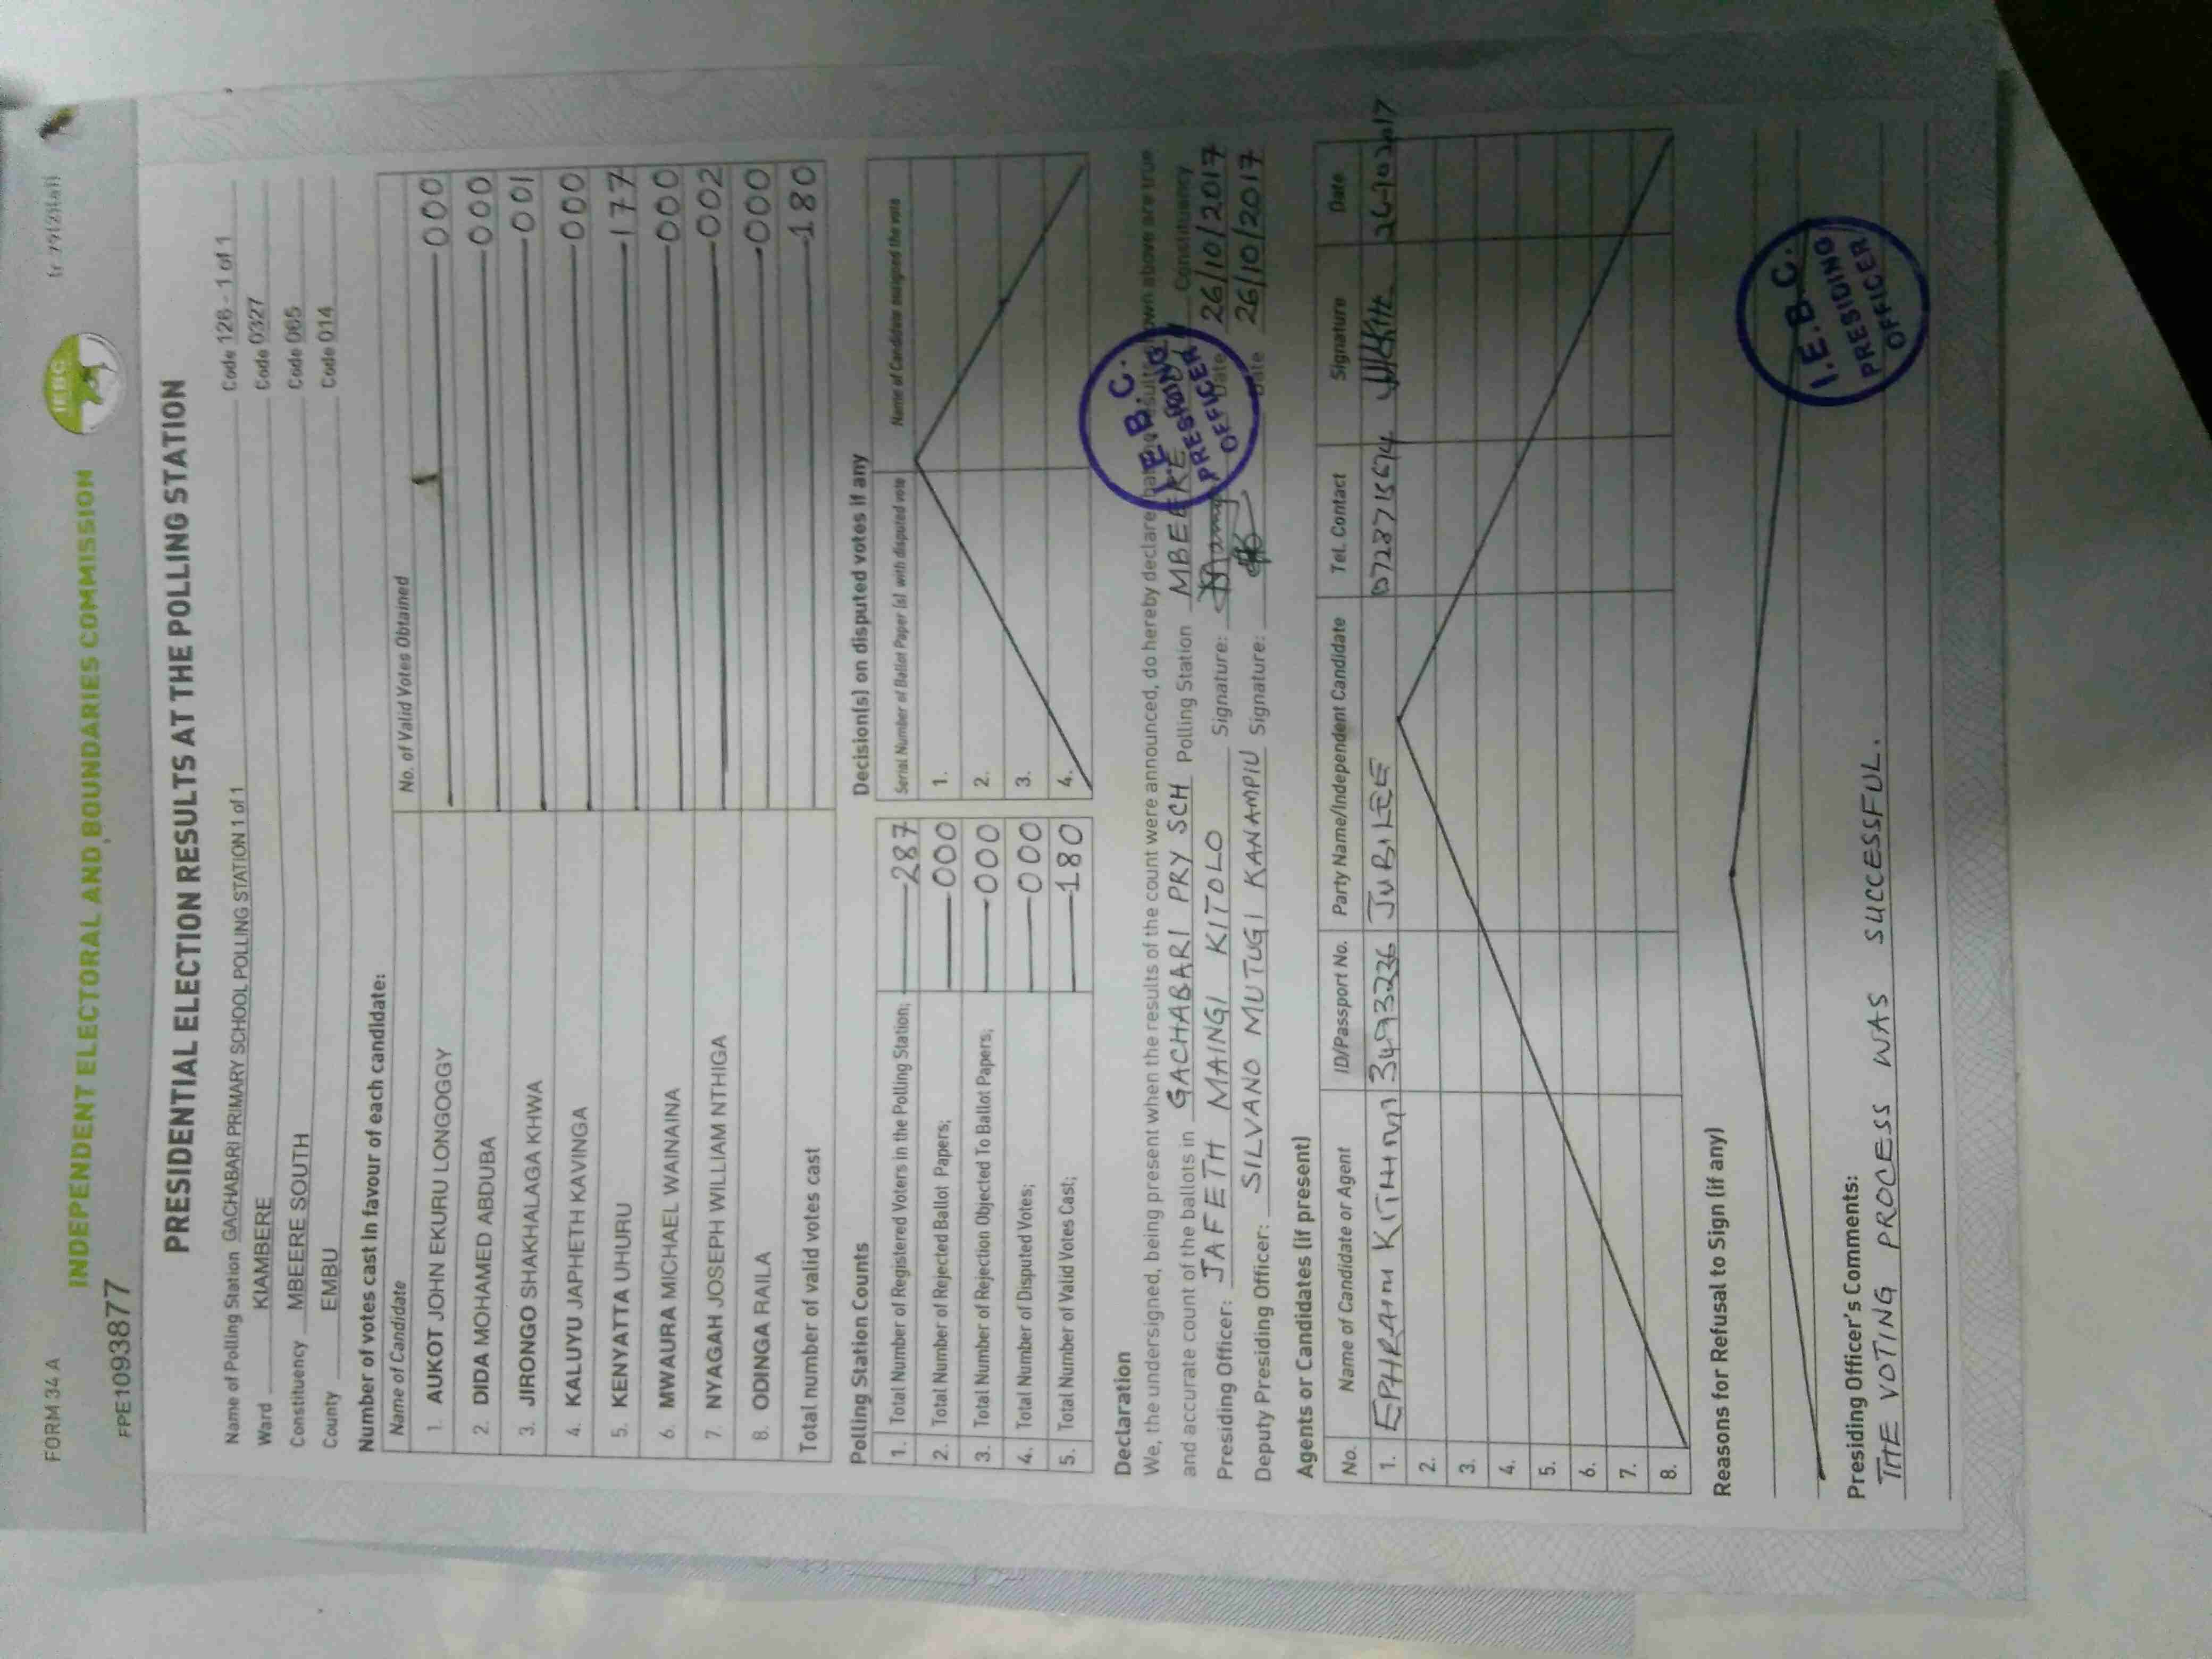 FORM 34 A
INDEPENDENT ELECTORAL AND BOUNDARIES COMMISSION
IEBC
FPE1093877
PRESIDENTIAL ELECTION RESULTS AT THE POLLING STATION
Name of Polling Station GACHABARI PRIMARY SCHOOL POLLING STATION 1 of 1 Code 126 - 1 of 1
Ward KIAMBERE Code 0327
Constituency MBEERE SOUTH Code 065
County EMBU Code 014
Number of votes cast in favour of each candidate:
Name of Candidate No. of Valid Votes Obtained
1. AUKOT JOHN EKURU LONGOGGY 000
2. DIDA MOHAMED ABDUBA 000
3. JIRONGO SHAKHALAGA KHWA 001
4. KALUYU JAPHETH KAVINGA 000
5. KENYATTA UHURU 177
6. MWAURA MICHAEL WAINAINA 000
7. NYAGAH JOSEPH WILLIAM NTHIGA 002
8. ODINGA RAILA 000
Total number of valid votes cast 180
Polling Station Counts
1. Total Number of Registered Voters in the Polling Station; 287
2. Total Number of Rejected Ballot Papers; 000
3. Total Number of Rejection Objected To Ballot Papers; 000
4. Total Number of Disputed Votes; 000
5. Total Number of Valid Votes Cast; 180
Decision(s) on disputed votes if any
Serial Number of Ballot Paper (s) with disputed vote Name of Candidate assigned the vote
1.
2.
3.
4.
Declaration
We, the undersigned, being present when the results of the count were announced, do hereby declare that the results shown above are true
and accurate count of the ballots in GACHABARI PRY SCH Polling Station MBEERE Constituency
Presiding Officer: JAFETH MAINGI KITOLO Signature: Date 26/10/2017
Deputy Presiding Officer: SILVANO MUTUGI KANAMPIU Signature: Date 26/10/2017
I.E.B.C.
PRESIDING
OFFICER
Agents or Candidates (if present)
No. Name of Candidate or Agent ID/Passport No. Party Name/Independent Candidate Tel. Contact Signature Date
1. EPHRAIM 3493226 JUBILEE
2.
3.
4.
5.
6.
7.
8.
Reasons for Refusal to Sign (if any)
I.E.B.C.
PRESIDING
OFFICER
Presiding Officer's Comments:
THE VOTING PROCESS WAS SUCCESSFUL.